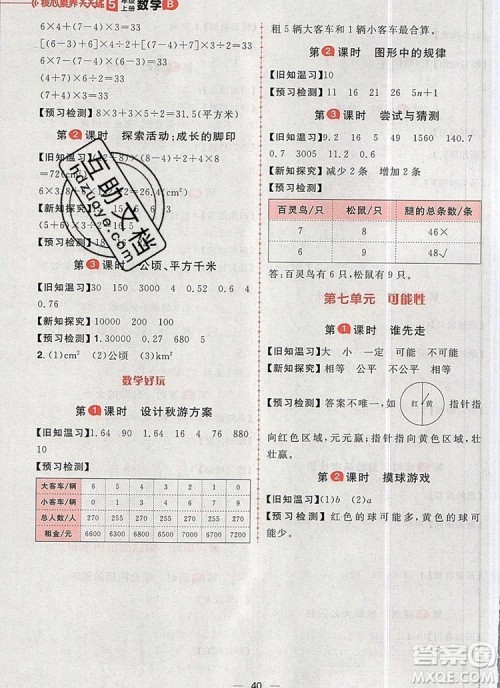 核心素养天天练 5年级上册 数学 B
6×4+(7-4)×(6-3)=33
[6-(6-3)]×4+(6-3)×7=33
(4+7)×(6-3)=33
【预习检测】8×3+3×5÷2=31.5(平方米)
第2课时 探索活动:成长的脚印
=72(
6×3
(5+6)×3
第3课时 公顷、平方千米
【旧知温习】30 150 3000 4 0.52 0.6 4
0.76
【新知探究】10000 200 100
【预习检测】1.30000 4.4 7.09 0.8
2.(1)cm² (2)公顷 (3)cm²
数学好玩
第1课时 设计秋游方案
【旧知温习】1.64 90 1.64 7 276 880
10
【预习检测】
大客车/辆 6 5 4 3 2 1 0
小客车/辆 0 2 3 5 6 8 9
总人数/人 270 285 270 285 270 285 270
租金/元 6600 6500 6400 6300 6200 6100 6000
租5辆大客车和1辆小客车最合算。
第2课时 图形中的规律
【旧知温习】10
【预习检测】11 16 21 26 5n+1
第3课时 尝试与猜测
【旧知温习】9.2 15 6 49 1560 140.7
0.7 3005 11.2 0.6
【新知探究】减少2条 增加2条
【预习检测】
百灵鸟/只 松鼠/只 腿的总条数/条
7 8 46×
6 9 48✓
答:百灵鸟有6只,松鼠有9只。
第七单元 可能性
第1课时 谁先走
【旧知温习】大 小 一定 可能 可能 可能
【新知探究】相等 公平 不相等 不公平
【预习检测】答案不唯一,如 红 黄 指针指
向红色区域,元元赢;指针指向黄色区域,壮
壮赢。
第2课时 摸球游戏
【旧知温习】(1)b (2)a
【预习检测】红色的球可能多,黄色的球可
能少。
互助文档
hdzuoye.com
40
答案圈
MXQE.COM